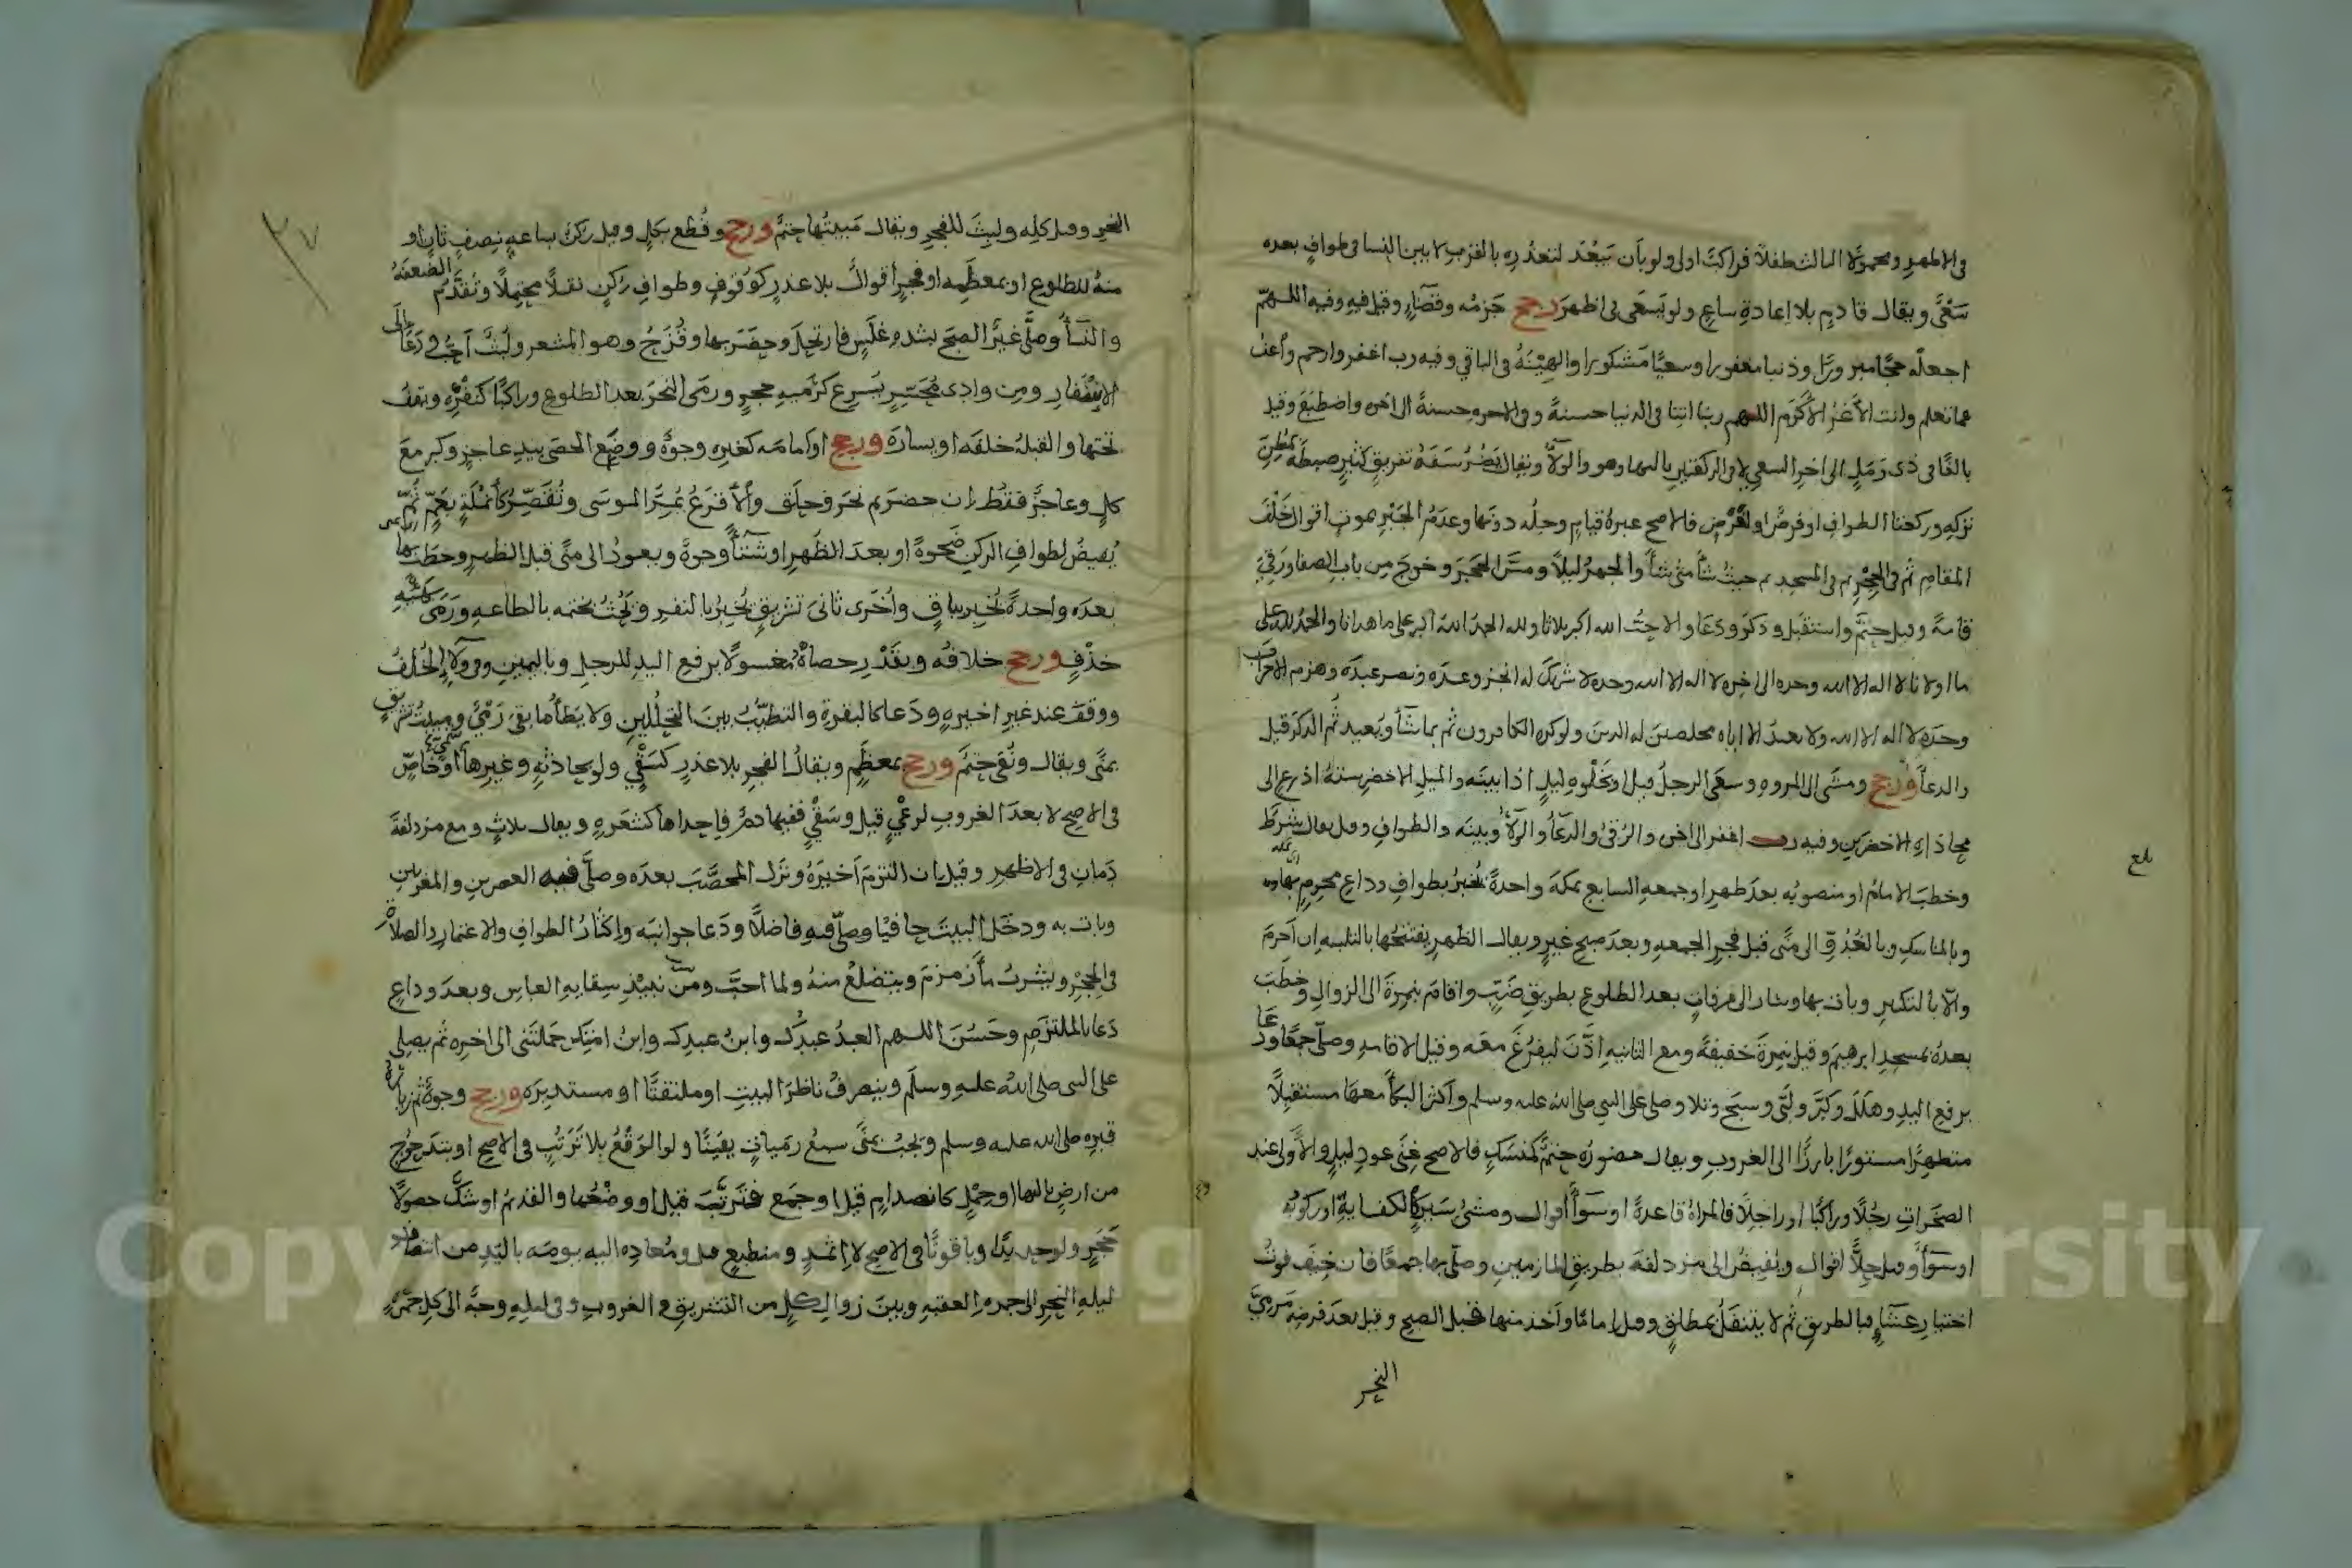 في الاظهر ومحمولا الثالث طفلا فراكبا اولى ولو بأن تبعد لتعذره بالقرب لا بين النسا في طواف بعده
سعى ويقال قادم بلا اعادة ساع ولو يسعى في اظهر ورجح جزمه وقضاء وقيل فيه وفيه اللهم
اجعله حجا مبرورا وذنبا مغفورا وسعيا مشكورا والهينة في الباقي وفيه رب اغفر وارحم وأعف
عما تعلم وانت الأعز الاكرم اللهم ربنا اتنا في الدنيا حسنة وفي الاخره حسنة الى اخره واضطبع وقيل
بالغا في ذي رمل الى اخر السعي لا في الركعتين بالبها وهو والولا ويقال يضر سفه تفريق كثير ضبطه بظن
تركه وركعتا الطواف او فرض او لفرض فالاصح عبرة قيام وحله دونها وعدم الجبر بموت اقوال خلف
المقام ثم في الحجر ثم في المسجد ثم حيث شأ متى شأ والجهر ليلا ومس الحجر وخرج من باب الصفا ورقي
قامة وقيل حتم واستقبل وذكر ودعا والاحب الله اكبر ثلاثا ولله الحمد الله اكبر على ما هدانا والحمد لله على
ما اولانا لا اله الا الله وحده الى اخره لا اله الا الله وحده لا شريك له انجز وعده ونصر عبده وهزم الاحزاب
وحده لا اله الا الله ولا نعبد الا اياه مخلصين له الدين ولو كره الكافرون ثم بما شأ ويعيد ثم الذكر قيل
والدعا ورجح ومشى الى المروه وسعى الرجل قيل او بخلوه ليل اذا بينه والميل الاخضر ستة اذرع الى
محاذاة الاخضرين وفيه رب اغفر الى اخره والرقي والدعا والولا وبينه والطواف وقيل يقال شرط
وخطب الامام او منصوبه بعد ظهر او جمعه السابع بمكه واحدة يخبر بطواف وداع محرم بها منه
وبالمناسك وبالغدو الى منى قبل فجر الجمعه وبعد صبح غير ويقال الظهر يفتتحها بالتلبيه ان احرم
والا بالتكبير وبات بها وسار الى عرفات بعد الطلوع بطريق ضب واقام بنمرة الى الزوال وخطب
بعده بمسجد ابرهيم وقيل بنمرة خفيفة ومع الثانيه اذن ليفرغ معه وقيل الاقامه وصلى جمعا ودعا
برفع اليد وهلل وكبر ولبى وسبح وتلا وصلى على النبي صلى الله عليه وسلم واكثر البكا معها مستقبلا
متطهرا مستورا بارزا الى الغروب ويقال حضوره حتم كمنسك فالاصح غنى عود ليل والاولى عند
الصخرات رجلا وراكبا او راجلا فالمراة قاعدة او سوا أقوال ومشي سير الكفاية او ركوبه
او سوأ وقيل جلا اقوال ويفيض الى مزدلفة بطريق المازمين وصلى بها جمعا فان خيف فوت
اختيار عشاء فبالطريق ثم لا يتنفل بمطلق وقيل اماما وأخذ منها قبل الصبح وقيل بعد فرضه مرمي
النحر
بلغ
النحر وقيل كله ولبث للفجر ويقال مبيتها حتم ورجح وقطع بكل وقيل ركن ساعه نصف ثان او
منه للطلوع او بمعظمه او فجر اقوال بلا عذر كوقوف وطواف ركن نقلا محتملا وتقدم الضعفه
والنسأ وصلى غير الصبح بشده غلس فارتحل وحضر بها وقزح وهو المشعر ولبث احب ودعا الى
الاسفار ومن وادي محسر يسرع كرميه حجر ورمى النحر بعد الطلوع وراكبا كنفره ويقف
تحتها والقبلة خلفه او يساره ورجح او امامه كغيره وجوه ووضع الحصى بيد عاجز وكبر مع
كل وعاجز فقط ان حضر ثم نحر وحلق والاقرع يمر الموسى وتقصر كأنملة بعم ثم
يفيض لطواف الركن ضحوة او بعد الظهر او شتأ وجوه ويعود الى منى قبل الظهر وخطب بها
بعده واحدة يخبر بباق واخرى ثاني تشريق يخبر بالنفر ويحث بختمه بالطاعه ورمى كهيئه
خذف ورجح خلافه وبقدر حصاة مغسولا برفع اليد للرجل وباليمين وفي ولا الخلف
ووقف عند غير اخيره ودعا كالبقرة والتطيب بين التحللين ولا يطأ ما بقي رمي ومبيت تشريق
بمنى ويقال ونقي حتم ورجح معظم ويقال الفجر بلا عذر كسقي ولو بحادثه وغيرها او خاص
في الاصح لا بعد الغروب لرعي قيل وسقي ففيها دم فاحداها كشعره ويقال ثلاث ومع مزدلفة
دمان في الاظهر وقيل ان التزم اخيره ونزل المحصب بعده وصلى فيه العصرين والمغربين
وبات به ودخل البيت حافيا وصلى فيه فاضلا ودعا جوانبه واكثار الطواف والاعتمار والصلاة
في الحجر وشرب مأ زمزم ويتضلع منه ولما احب ومن نبيذ سقاية العباس وبعد وداع
دعا بالملتزم وحسن اللهم العبد عبدك وابن عبدك وابن امتك حملتني الى اخره ثم يصلي
على النبي صلى الله عليه وسلم وينصرف ناظر البيت او ملتفتا او مستدبره ورجح وجوه ثم زيارة
قبره صلى الله عليه وسلم ويجب بمنى سبع رميات يقينا ولو الوقع بلا ترتب في الاصح او بتدحرج
من ارض بالبها او حمل كانصدام قيل او جمع فترتب قيل او ووضعها والقدم او شك حصولا
حجر ولو حديدا وياقوتا في الاصح لا اثمد ومنطبع قيل ومعاده اليه بيومه باليد من انتصاف
ليله النحر الى جمره العقبه وبين زوال كل من التشريق والغروب وفي ليله وجه الى كل جمره
٣٧